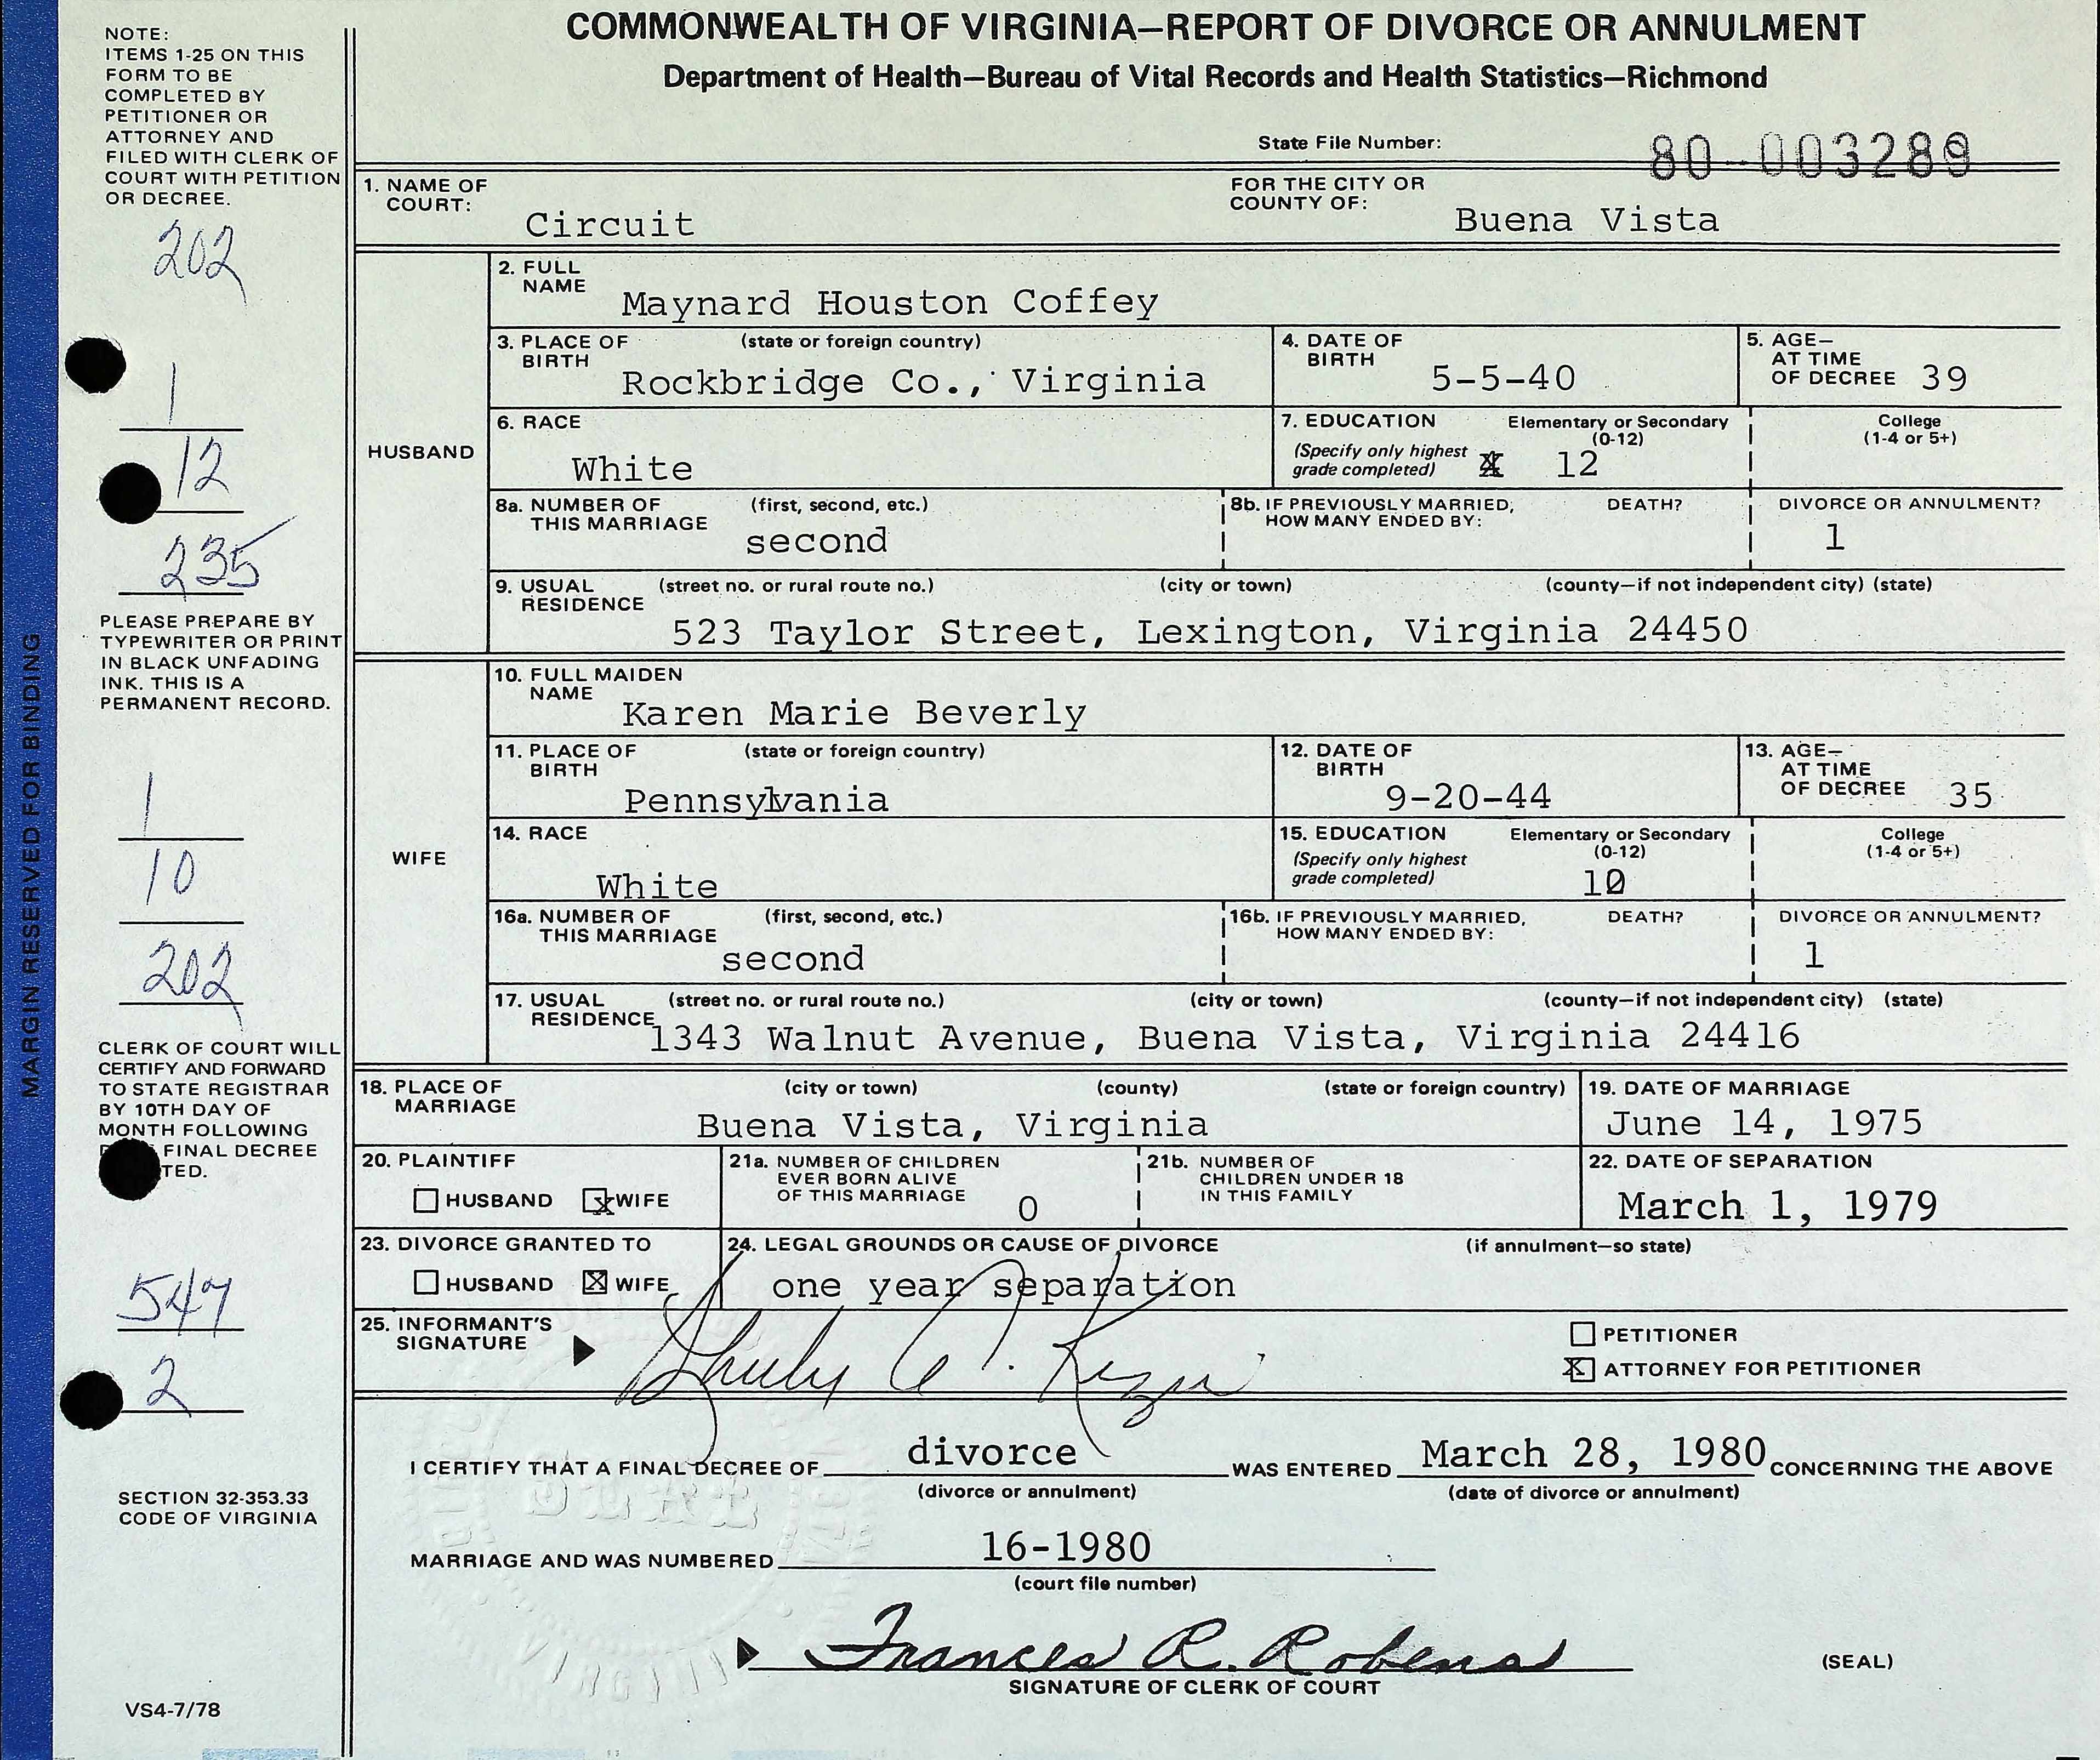 COMMONWEALTH OF VIRGINIA—REPORT OF DIVORCE OR ANNULMENT
Department of Health—Bureau of Vital Records and Health Statistics—Richmond
NOTE:
ITEMS 1-25 ON THIS
FORM TO BE
COMPLETED BY
PETITIONER OR
ATTORNEY AND
FILED WITH CLERK OF
COURT WITH PETITION
OR DECREE.
202
1
12
235
PLEASE PREPARE BY
TYPEWRITER OR PRINT
IN BLACK UNFADING
INK. THIS IS A
PERMANENT RECORD.
1
10
202
CLERK OF COURT WILL
CERTIFY AND FORWARD
TO STATE REGISTRAR
BY 10TH DAY OF
MONTH FOLLOWING
FINAL DECREE
TED.
547
2
SECTION 32-353.33
CODE OF VIRGINIA
VS4-7/78
MARGIN RESERVED FOR BINDING
State File Number: 80-003289
1. NAME OF COURT: Circuit
FOR THE CITY OR COUNTY OF: Buena Vista
HUSBAND
2. FULL NAME Maynard Houston Coffey
3. PLACE OF BIRTH (state or foreign country) Rockbridge Co., Virginia
4. DATE OF BIRTH 5-5-40
5. AGE— AT TIME OF DECREE 39
6. RACE White
7. EDUCATION (Specify only highest grade completed) Elementary or Secondary (0-12) 12
College (1-4 or 5+)
8a. NUMBER OF THIS MARRIAGE (first, second, etc.) second
8b. IF PREVIOUSLY MARRIED, HOW MANY ENDED BY: DEATH? DIVORCE OR ANNULMENT? 1
9. USUAL RESIDENCE (street no. or rural route no.) (city or town) (county—if not independent city) (state)
523 Taylor Street, Lexington, Virginia 24450
WIFE
10. FULL MAIDEN NAME Karen Marie Beverly
11. PLACE OF BIRTH (state or foreign country) Pennsylvania
12. DATE OF BIRTH 9-20-44
13. AGE— AT TIME OF DECREE 35
14. RACE White
15. EDUCATION (Specify only highest grade completed) Elementary or Secondary (0-12) 10
College (1-4 or 5+)
16a. NUMBER OF THIS MARRIAGE (first, second, etc.) second
16b. IF PREVIOUSLY MARRIED, HOW MANY ENDED BY: DEATH? DIVORCE OR ANNULMENT? 1
17. USUAL RESIDENCE (street no. or rural route no.) (city or town) (county—if not independent city) (state)
1343 Walnut Avenue, Buena Vista, Virginia 24416
18. PLACE OF MARRIAGE (city or town) (county) (state or foreign country)
Buena Vista, Virginia
19. DATE OF MARRIAGE June 14, 1975
20. PLAINTIFF HUSBAND x WIFE
21a. NUMBER OF CHILDREN EVER BORN ALIVE OF THIS MARRIAGE 0
21b. NUMBER OF CHILDREN UNDER 18 IN THIS FAMILY
22. DATE OF SEPARATION March 1, 1979
23. DIVORCE GRANTED TO HUSBAND X WIFE
24. LEGAL GROUNDS OR CAUSE OF DIVORCE (if annulment—so state)
one year separation
25. INFORMANT'S SIGNATURE
PETITIONER
X ATTORNEY FOR PETITIONER
I CERTIFY THAT A FINAL DECREE OF divorce WAS ENTERED March 28, 1980 CONCERNING THE ABOVE
(divorce or annulment) (date of divorce or annulment)
MARRIAGE AND WAS NUMBERED 16-1980
(court file number)
Frances R. Robens
SIGNATURE OF CLERK OF COURT
(SEAL)